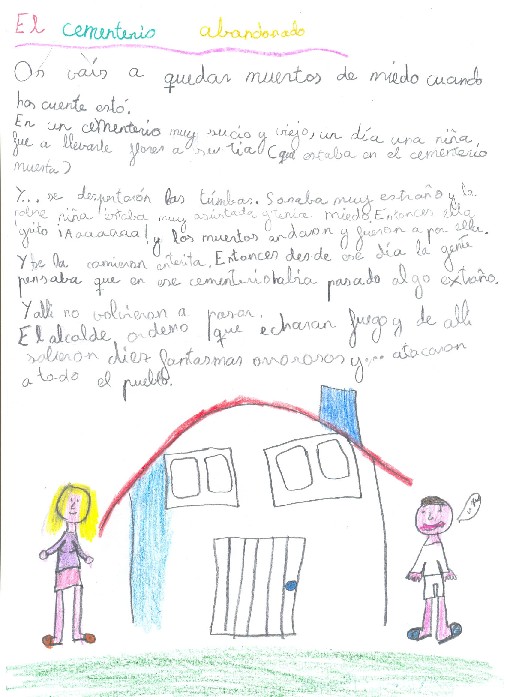 El cementerio abandonado
Os vais a quedar muertos de miedo cuando
hos cuente esto.
En un cementerio muy sucio y viejo, un día una niña
fue a llevarle flores a su tia (que estaba en el cementerio
muerta)
Y... se despertarón las túmbas. Sonaba muy estraño y la
pobre niña estaba muy asustada y tenia miedo. Entonces ella
gritó ¡Aaaaaaa! y los muertos andaron y fueron a por ella.
Y se la comieron enterita. Entonces desde ese día la gente
pensaba que en ese cementerio habia pasado algo extraño.
Y alli no volvieron a pasar.
El alcalde, ordeno que echaran fuego y de alli
salieron diez fantasmas orrorosos y... atacaron
a todo el pueblo.